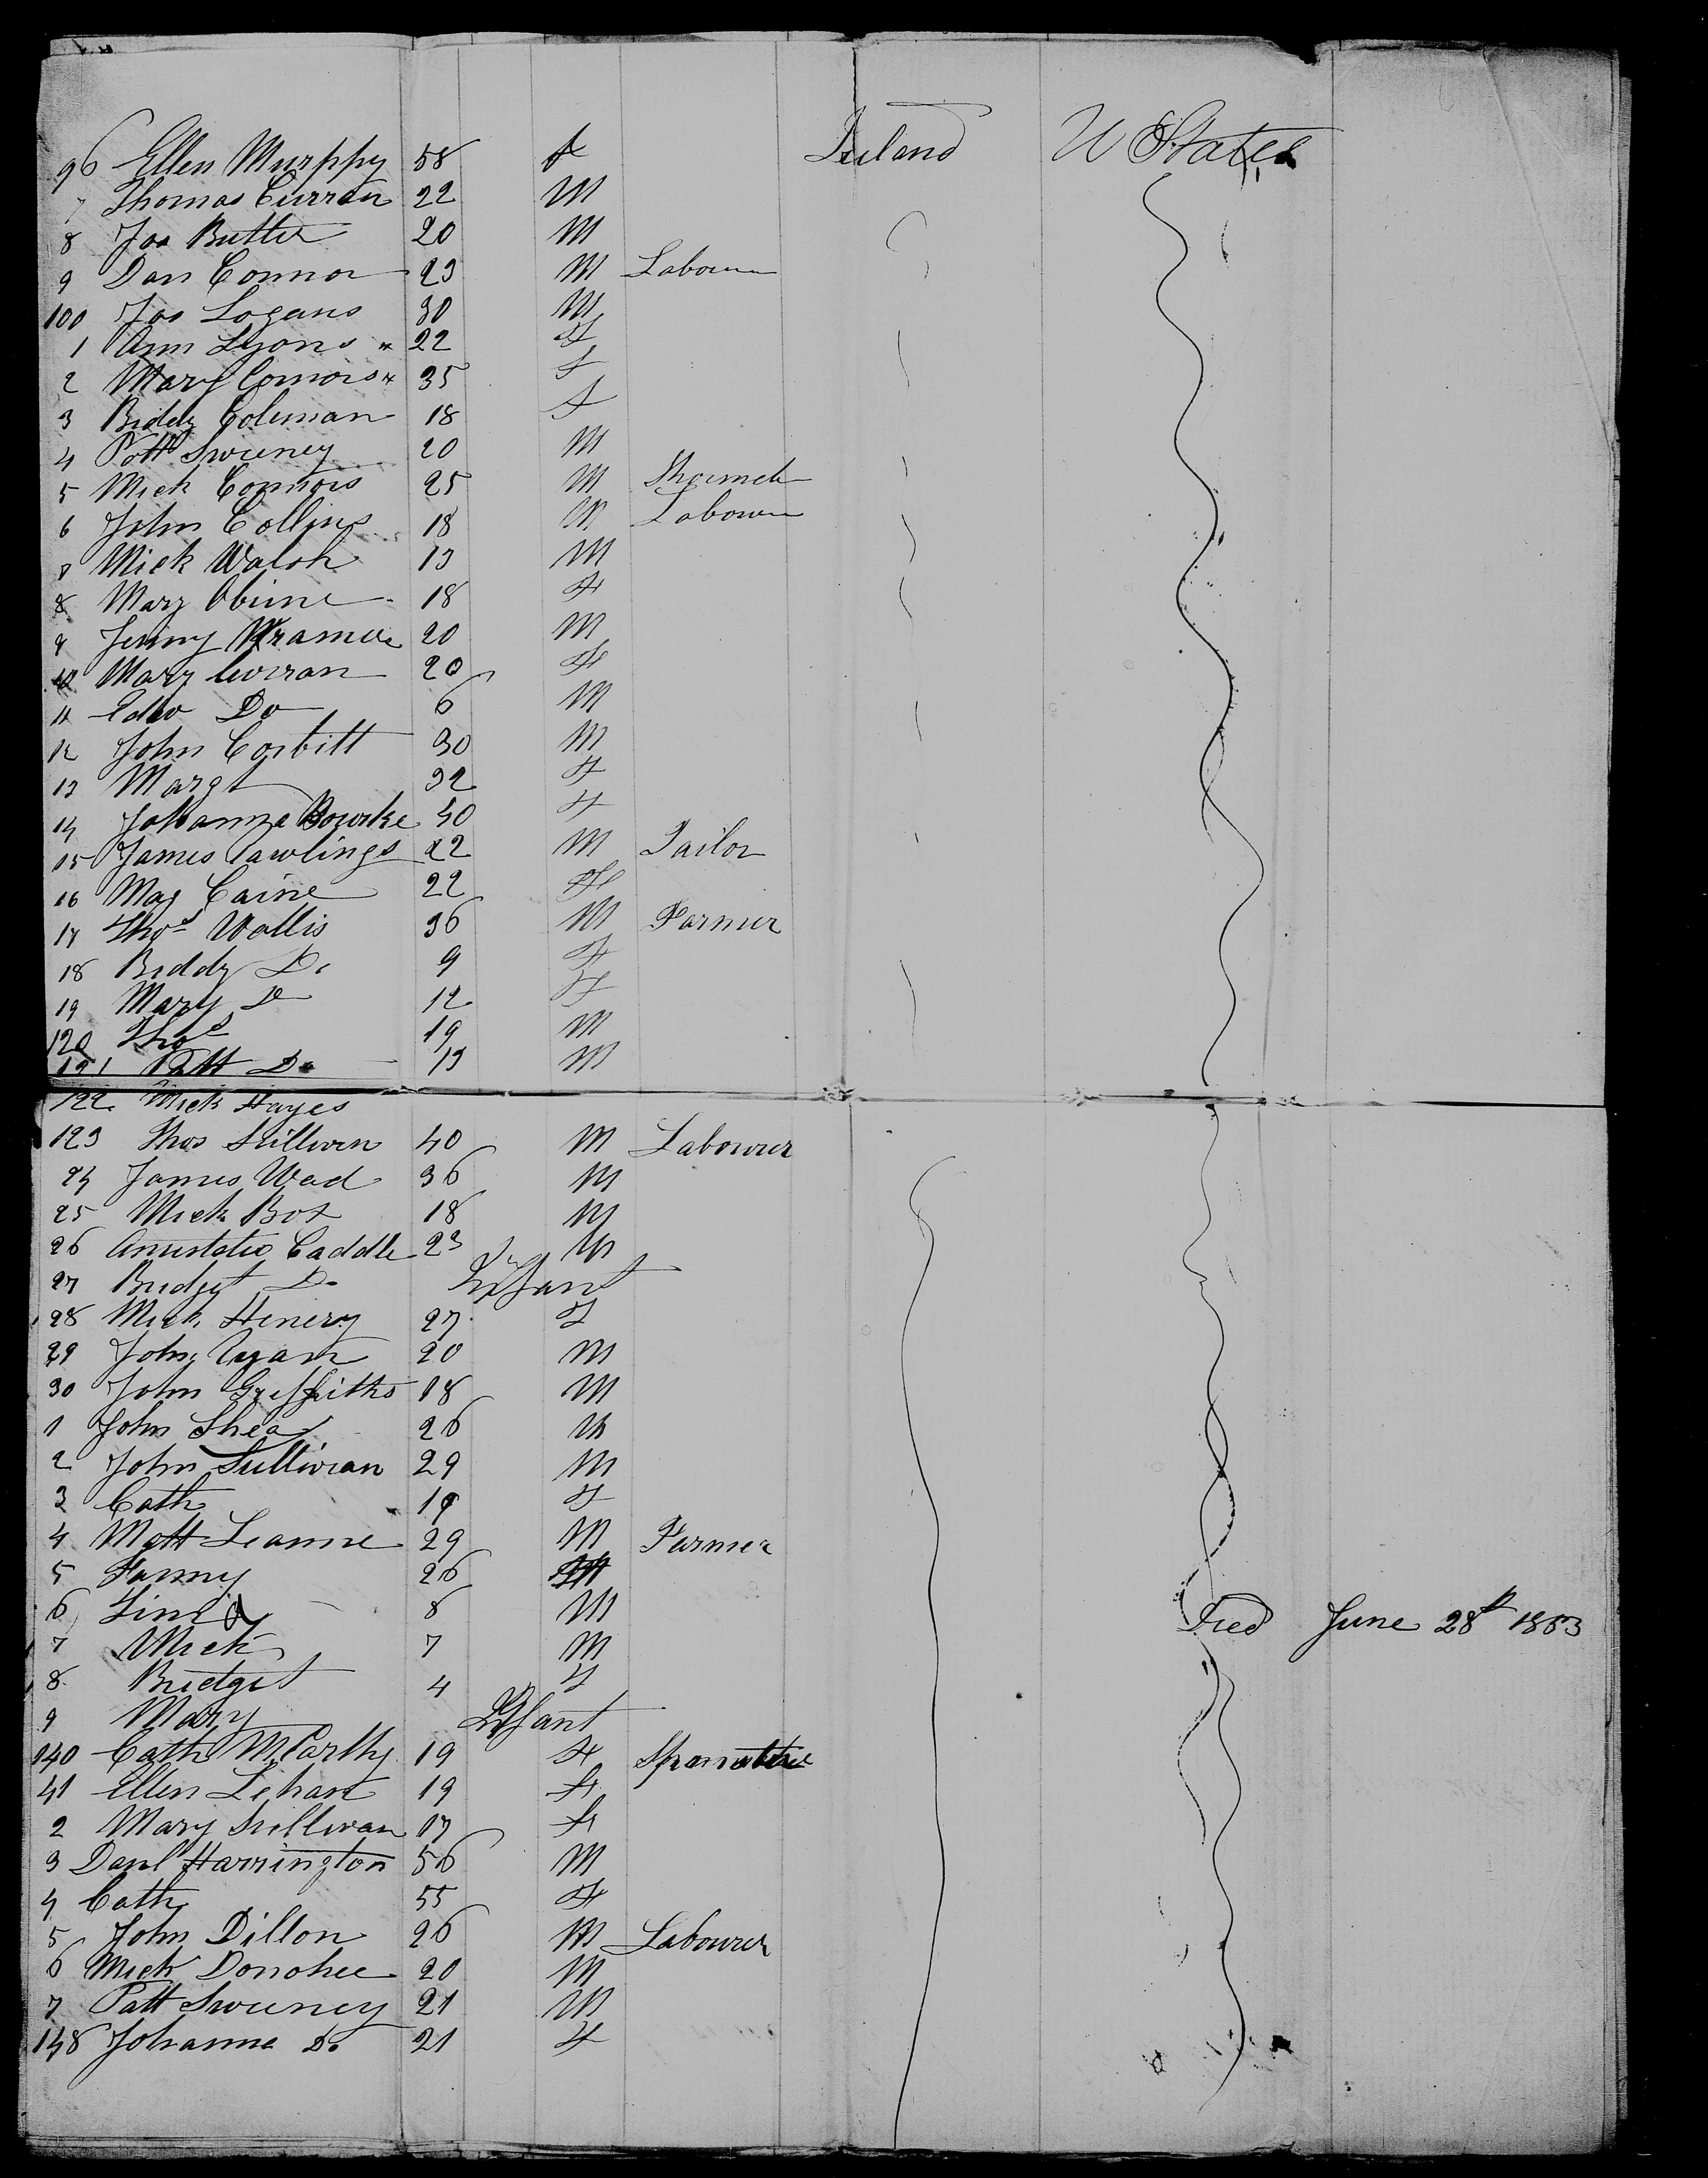 96 Ellen Murphy 58 f Ireland U States
7 Thomas Curran 22 M
8 Jas Butler 20 M
9 Dan Connor 23 M Labourer
100 Jas Logans 30 M
1 Ann Lyons 22 F
2 Mary Connors 35 F
3 Biddy Coleman 18 F
4 Patt Sweeney 20 M
5 Mick Connors 25 M
6 John Collins 18 M Labourer
7 Mick Walsh 13 M
8 Mary 18 F
9 Jenny 20 M
10 Mary Curran 20 F
11 Edw Do 6 M
12 John Corbitt 30 M
13 Margt 32 F
14 Johanna Bourke 40 F
15 James Rawlings 22 M Tailor
16 Mag Caine 22 F
17 Thos Wallis 36 M Farmer
18 Biddy Do 9 F
19 Mary Do 12 F
120 Thos 19 M
121 Patt Do 13 M
122 Mick Hayes
123 Thos Sullivan 40 M Labourer
24 James Wad 36 M
25 Mick Box 18 M
26 Caddle 23 M
27 Bridget Do Infant
28 Mick Henery 27 F
29 John Ryan 20 M
30 John Greffiths 18 M
1 John Shea 26 M
2 John Sullivan 29 M
3 Cath 19 F
4 Matt Leanne 29 M Farmer
5 Fanny 26
6 8 M Died June 28th 1853
7 Mick 7 M
8 Bridget 4 F
9 Mary Infant
140 Cath McCarthy 19 F
41 Ellen Lehan 19 F
2 Mary Sullivan 17 F
3 Danl Harrington 56 M
4 Cath 55 F
5 John Dillon 26 M Labourer
6 Mick Donohee 20 M
7 Patt Sweeney 21 M
148 Johanna Do 21 F